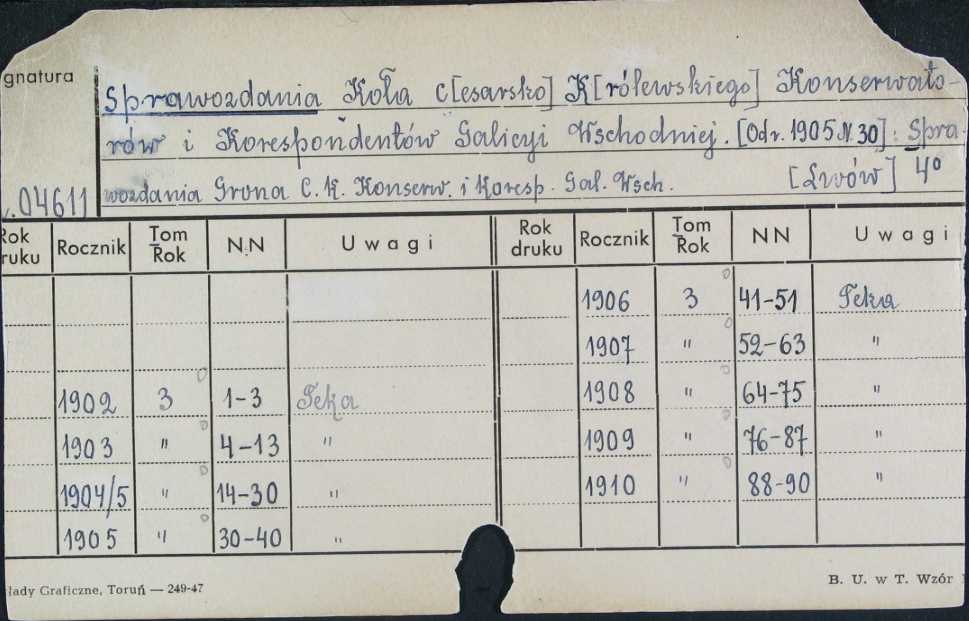 gnatura
Sprawozdania Koła C[esarsko] K[rólewskiego] Konserwato-
rów i Korespondentów Galicyi Wschodniej. [Odr. 1905 N. 30]: Spra-
wozdania Grona C. K. Konserw. i Koresp. Gal. Wsch. [Lwów] 4°
04611
Rok druku Rocznik Tom Rok N.N Uwagi Rok druku Rocznik Tom Rok NN Uwagi
1906 3 41-51 Teka
1907 " 52-63 "
1902 3 1-3 Teka 1908 " 64-75 "
1903 " 4-13 " 1909 " 76-87 "
1904/5 " 14-30 " 1910 " 88-90 "
1905 " 30-40 "
łady Graficzne, Toruń — 249-47 B. U. w T. Wzór